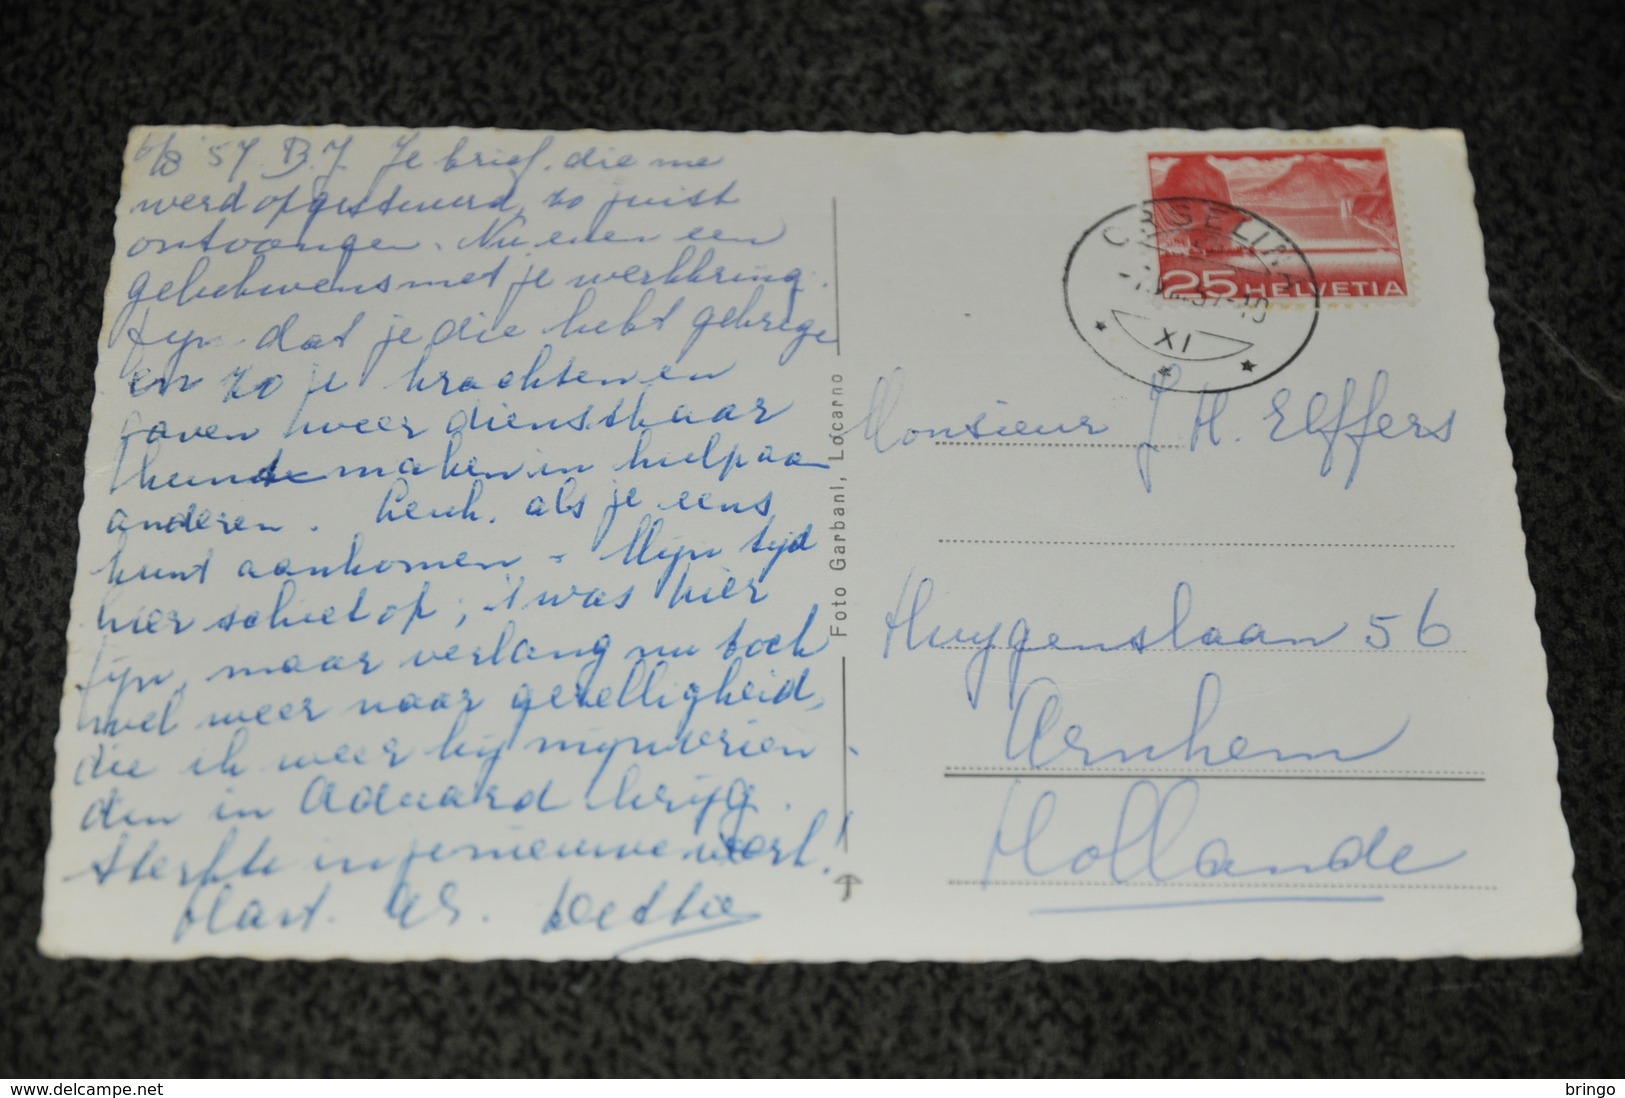 6/8 '57. B.J. Je brief, die me
werd opgestuurd, zo juist
ontvangen. Nu even een
gelukwens met je werkkring.
fijn dat je die hebt gekregen
en zo je krachten en
gaven weer dienstbaar
kunt maken in hulp aan
anderen. Leuk, als je eens
kunt aankomen - Mijn tijd
hier schiet op; 't was hier
fijn, maar verlang nu toch
wel weer naar gezelligheid,
die ik weer bij mijn vrien-
den in Aduard krijg.
Sterkte in je nieuwe werk!
Hart. Gr.
Foto Garbani, Locarno
25 HELVETIA
XI
Monsieur J. H. Elffers
Huygenslaan 56
Arnhem
Hollande
www.delcampe.net
bringo